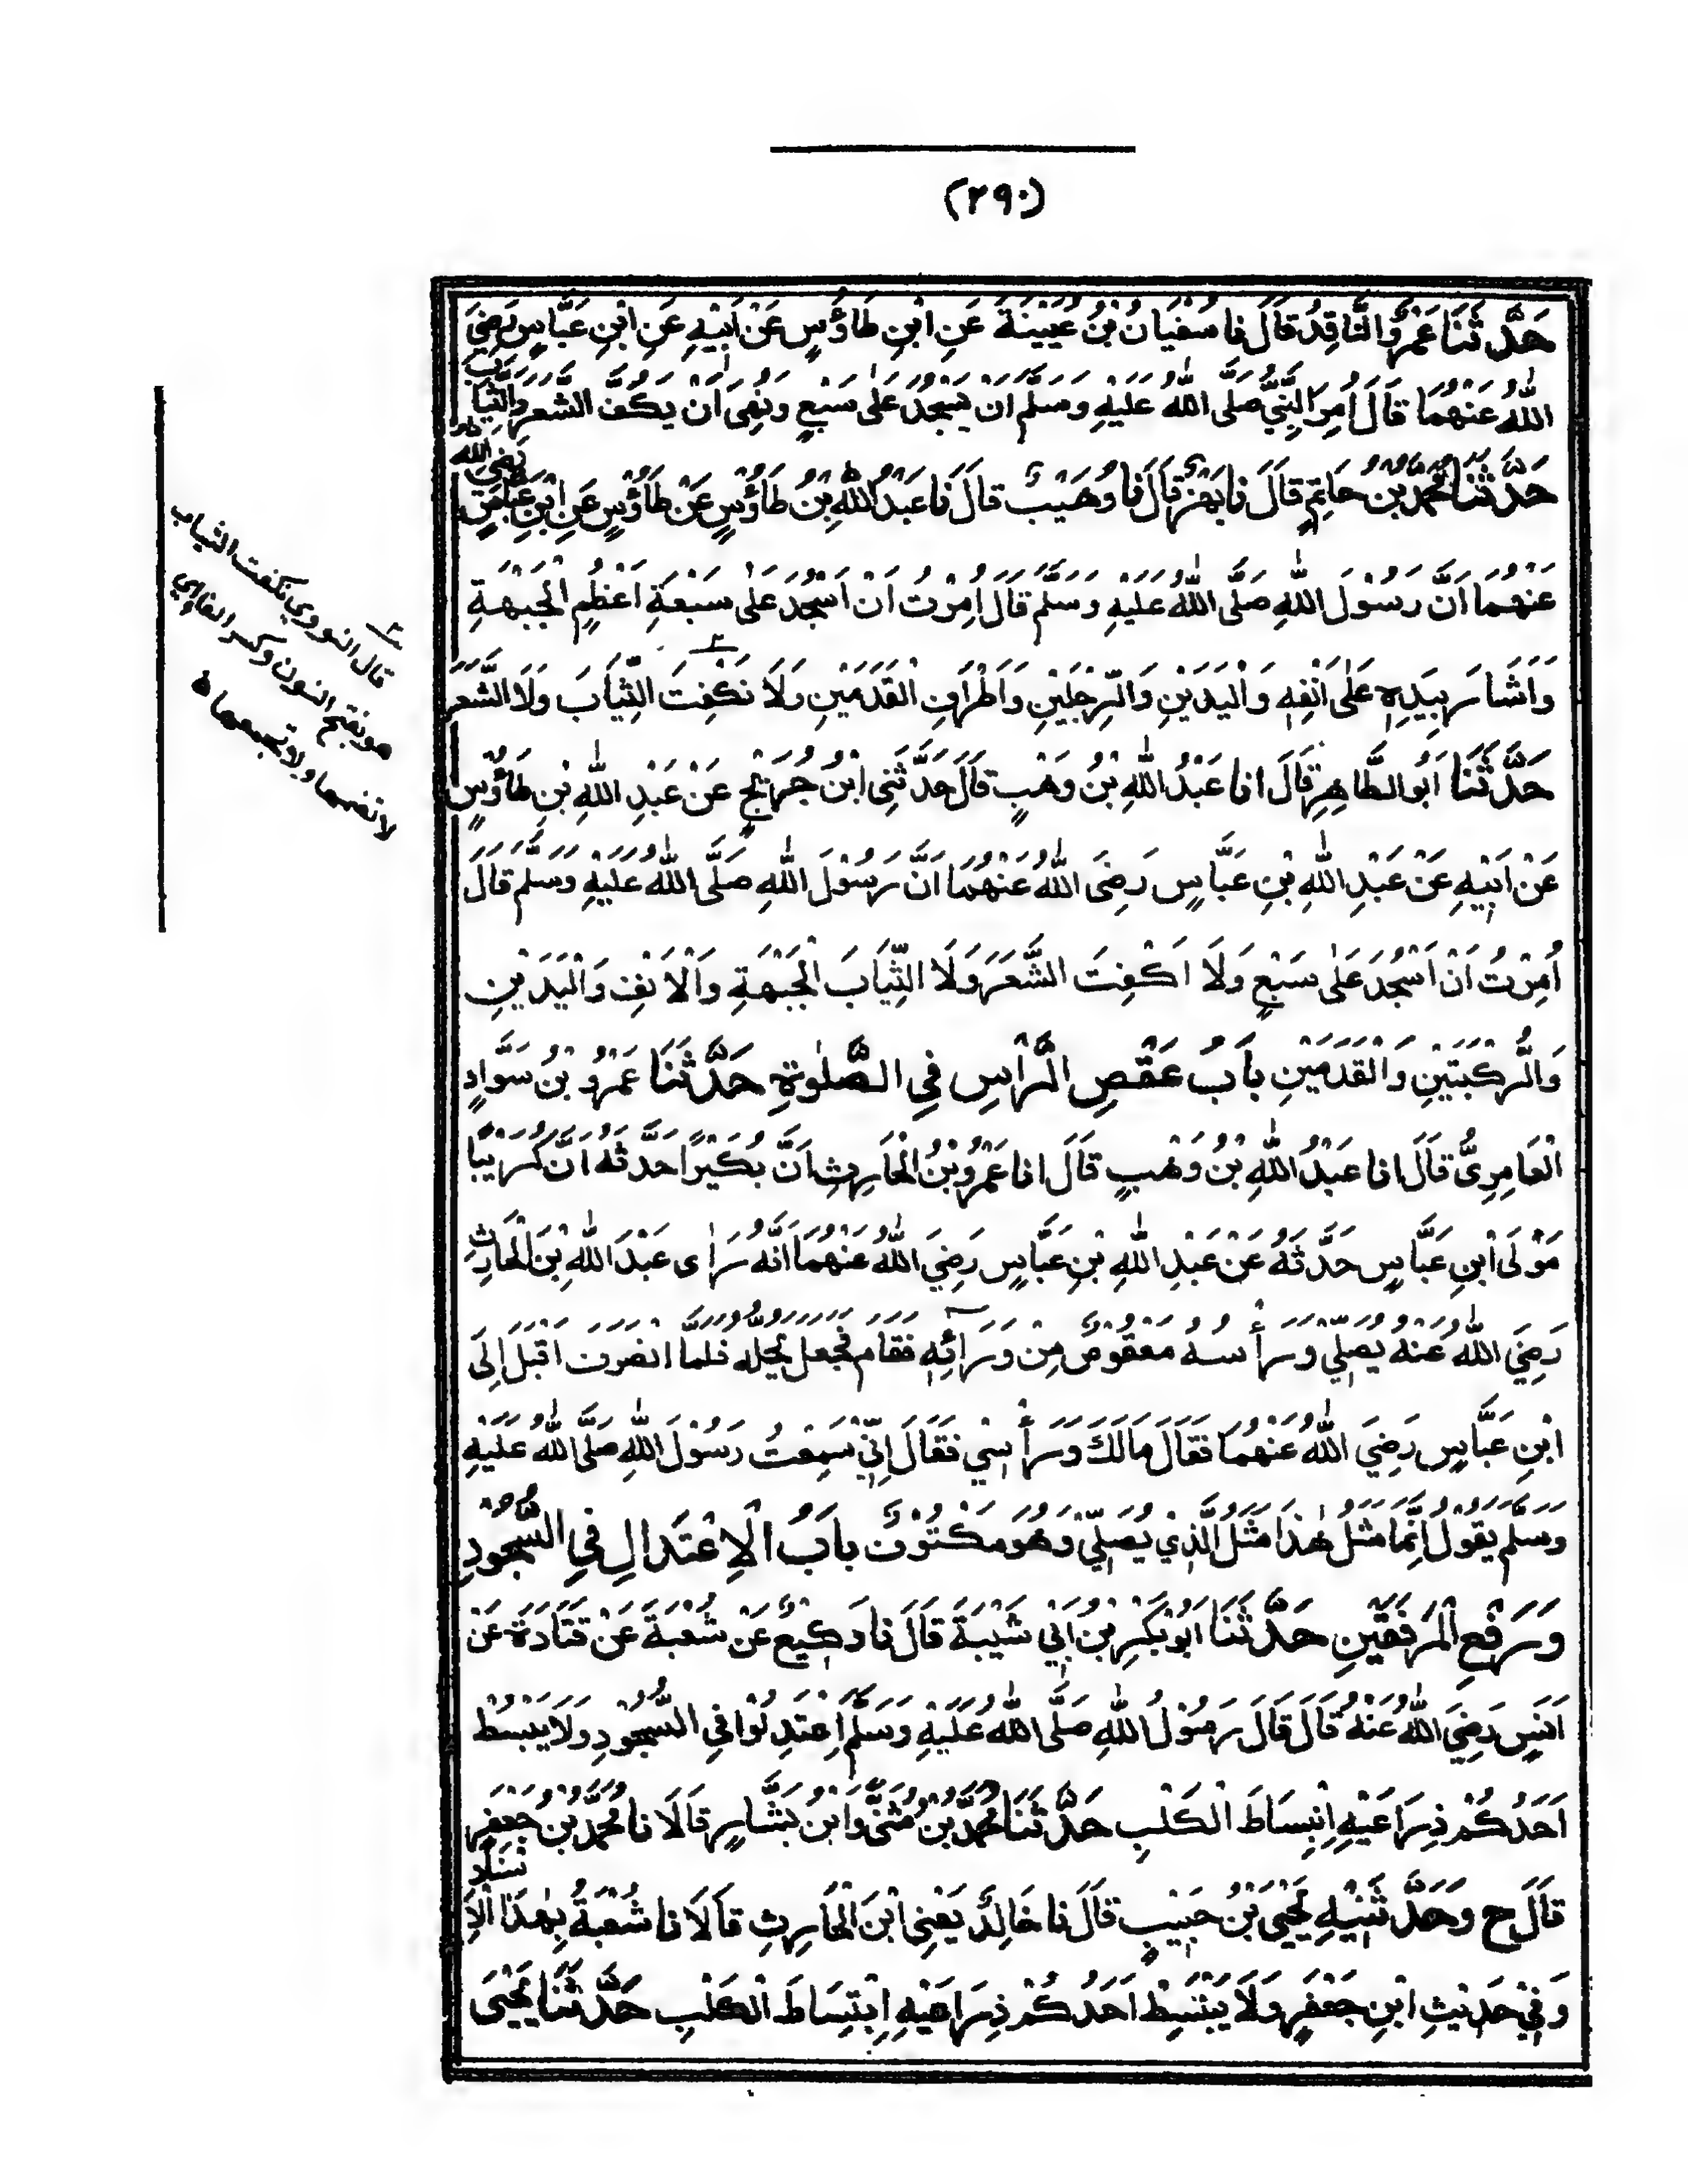 (٢٩٠)
حَدَّثَنَا عَمْرٌو النَّاقِدُ قَالَ نا سُفْيَانُ بْنُ عُيَيْنَةَ عَنِ ابْنِ طَاؤُسٍ عَنْ اَبِيْهِ عَنِ ابْنِ عَبَّاسٍ رَضِيَ
اللّٰهُ عَنْهُمَا قَالَ اُمِرَ النَّبِيُّ صَلَّى اللّٰهُ عَلَيْهِ وَسَلَّمَ اَنْ يَسْجُدَ عَلٰى سَبْعٍ وَنُهِىَ اَنْ يَكُفَّ الشَّعَرَ وَالثِّيَابَ
حَدَّثَنَا مُحَمَّدُ بْنُ حَاتِمٍ قَالَ نا بَهْزٌ قَالَ نا وُهَيْبٌ قَالَ نا عَبْدُ اللّٰهِ بْنُ طَاؤُسٍ عَنْ طَاؤُسٍ عَنِ ابْنِ عَبَّاسٍ رَضِيَ اللّٰهُ
عَنْهُمَا اَنَّ رَسُوْلَ اللّٰهِ صَلَّى اللّٰهُ عَلَيْهِ وَسَلَّمَ قَالَ اُمِرْتُ اَنْ اَسْجُدَ عَلٰى سَبْعَةِ اَعْظُمٍ الْجَبْهَةِ
وَاَشَارَ بِيَدِهٖ عَلٰى اَنْفِهٖ وَالْيَدَيْنِ وَالرِّجْلَيْنِ وَاَطْرَافِ الْقَدَمَيْنِ وَلَا نَكْفِتَ الثِّيَابَ وَلَا الشَّعَرَ
حَدَّثَنَا اَبُو الطَّاهِرِ قَالَ انا عَبْدُ اللّٰهِ بْنُ وَهْبٍ قَالَ حَدَّثَنِى ابْنُ جُرَيْجٍ عَنْ عَبْدِ اللّٰهِ بْنِ طَاؤُسٍ
عَنْ اَبِيْهِ عَنْ عَبْدِ اللّٰهِ بْنِ عَبَّاسٍ رَضِىَ اللّٰهُ عَنْهُمَا اَنَّ رَسُوْلَ اللّٰهِ صَلَّى اللّٰهُ عَلَيْهِ وَسَلَّمَ قَالَ
اُمِرْتُ اَنْ اَسْجُدَ عَلٰى سَبْعٍ وَلَا اَكْفِتَ الشَّعَرَ وَلَا الثِّيَابَ الْجَبْهَةِ وَالْاَنْفِ وَالْيَدَيْنِ
وَالرُّكْبَتَيْنِ وَالْقَدَمَيْنِ بَابُ عَقْصِ الرَّاْسِ فِي الصَّلٰوةِ حَدَّثَنَا عَمْرُو بْنُ سَوَّادٍ
الْعَامِرِيُّ قَالَ انا عَبْدُ اللّٰهِ بْنُ وَهْبٍ قَالَ انا عَمْرُو بْنُ الْحَارِثِ اَنَّ بُكَيْرًا حَدَّثَهُ اَنَّ كُرَيْبًا
مَوْلَى ابْنِ عَبَّاسٍ حَدَّثَهُ عَنْ عَبْدِ اللّٰهِ بْنِ عَبَّاسٍ رَضِيَ اللّٰهُ عَنْهُمَا اَنَّهُ رَاٰى عَبْدَ اللّٰهِ بْنَ الْحَارِثِ
رَضِيَ اللّٰهُ عَنْهُ يُصَلِّيْ وَرَأْسُهُ مَعْقُوْصٌ مِنْ وَرَآئِهٖ فَقَامَ فَجَعَلَ يَحُلُّهُ فَلَمَّا انْصَرَفَ اَقْبَلَ اِلَى
ابْنِ عَبَّاسٍ رَضِيَ اللّٰهُ عَنْهُمَا فَقَالَ مَالَكَ وَرَأْسِيْ فَقَالَ اِنِّيْ سَمِعْتُ رَسُوْلَ اللّٰهِ صَلَّى اللّٰهُ عَلَيْهِ
وَسَلَّمَ يَقُوْلُ اِنَّمَا مَثَلُ هٰذَا مَثَلُ الَّذِيْ يُصَلِّيْ وَهُوَ مَكْتُوْفٌ بَابُ الْاِعْتَدَالِ فِي السُّجُوْدِ
وَرَفْعِ الْمِرْفَقَيْنِ حَدَّثَنَا اَبُوْ بَكْرِ بْنُ اَبِيْ شَيْبَةَ قَالَ نا وَكِيْعٌ عَنْ شُعْبَةَ عَنْ قَتَادَةَ عَنْ
اَنَسٍ رَضِيَ اللّٰهُ عَنْهُ قَالَ قَالَ رَسُوْلُ اللّٰهِ صَلَّى اللّٰهُ عَلَيْهِ وَسَلَّمَ اِعْتَدِلُوْا فِي السُّجُوْدِ وَلَا يَبْسُطْ
اَحَدُكُمْ ذِرَاعَيْهِ اِنْبِسَاطَ الْكَلْبِ حَدَّثَنَا مُحَمَّدُ بْنُ مُثَنّٰى وَابْنُ بَشَّارٍ قَالَا نا مُحَمَّدُ بْنُ جَعْفَرٍ
قَالَ ح وَحَدَّثَنِيْهِ يَحْيَى بْنُ حَبِيْبٍ قَالَ نا خَالِدٌ يَعْنِى ابْنَ الْحَارِثِ قَالَا نا شُعْبَةُ بِهٰذَا الْاِسْنَادِ
وَفِيْ حَدِيْثِ ابْنِ جَعْفَرٍ وَلَا يَبْتَسِطْ اَحَدُكُمْ ذِرَاعَيْهِ اِبْتِسَاطَ الْكَلْبِ حَدَّثَنَا يَحْيَى
قال النووي نكفت الثياب
هو بفتح النون وكسر الفاء اي
لا نضمها ولا نجمعها ه